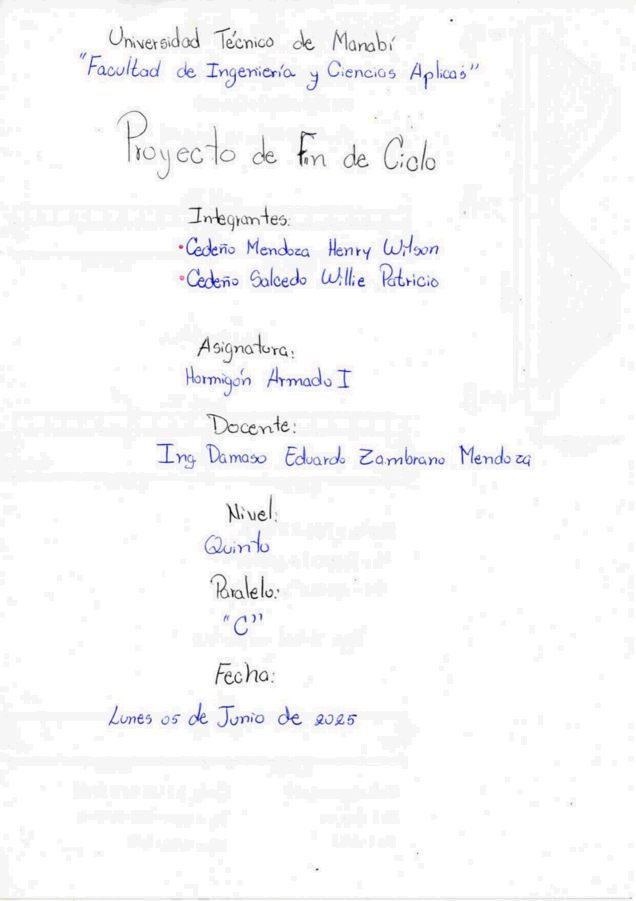 Universidad Técnico de Manabí
"Facultad de Ingeniería y Ciencias Aplicas"
Proyecto de Fin de Ciclo
Integrantes:
• Cedeño Mendoza Henry Wilson
• Cedeño Salcedo Willie Patricio
Asignatura:
Hormigón Armado I
Docente:
Ing Damaso Eduardo Zambrano Mendoza
Nivel:
Quinto
Paralelo:
"C"
Fecha:
Lunes 05 de Junio de 2025